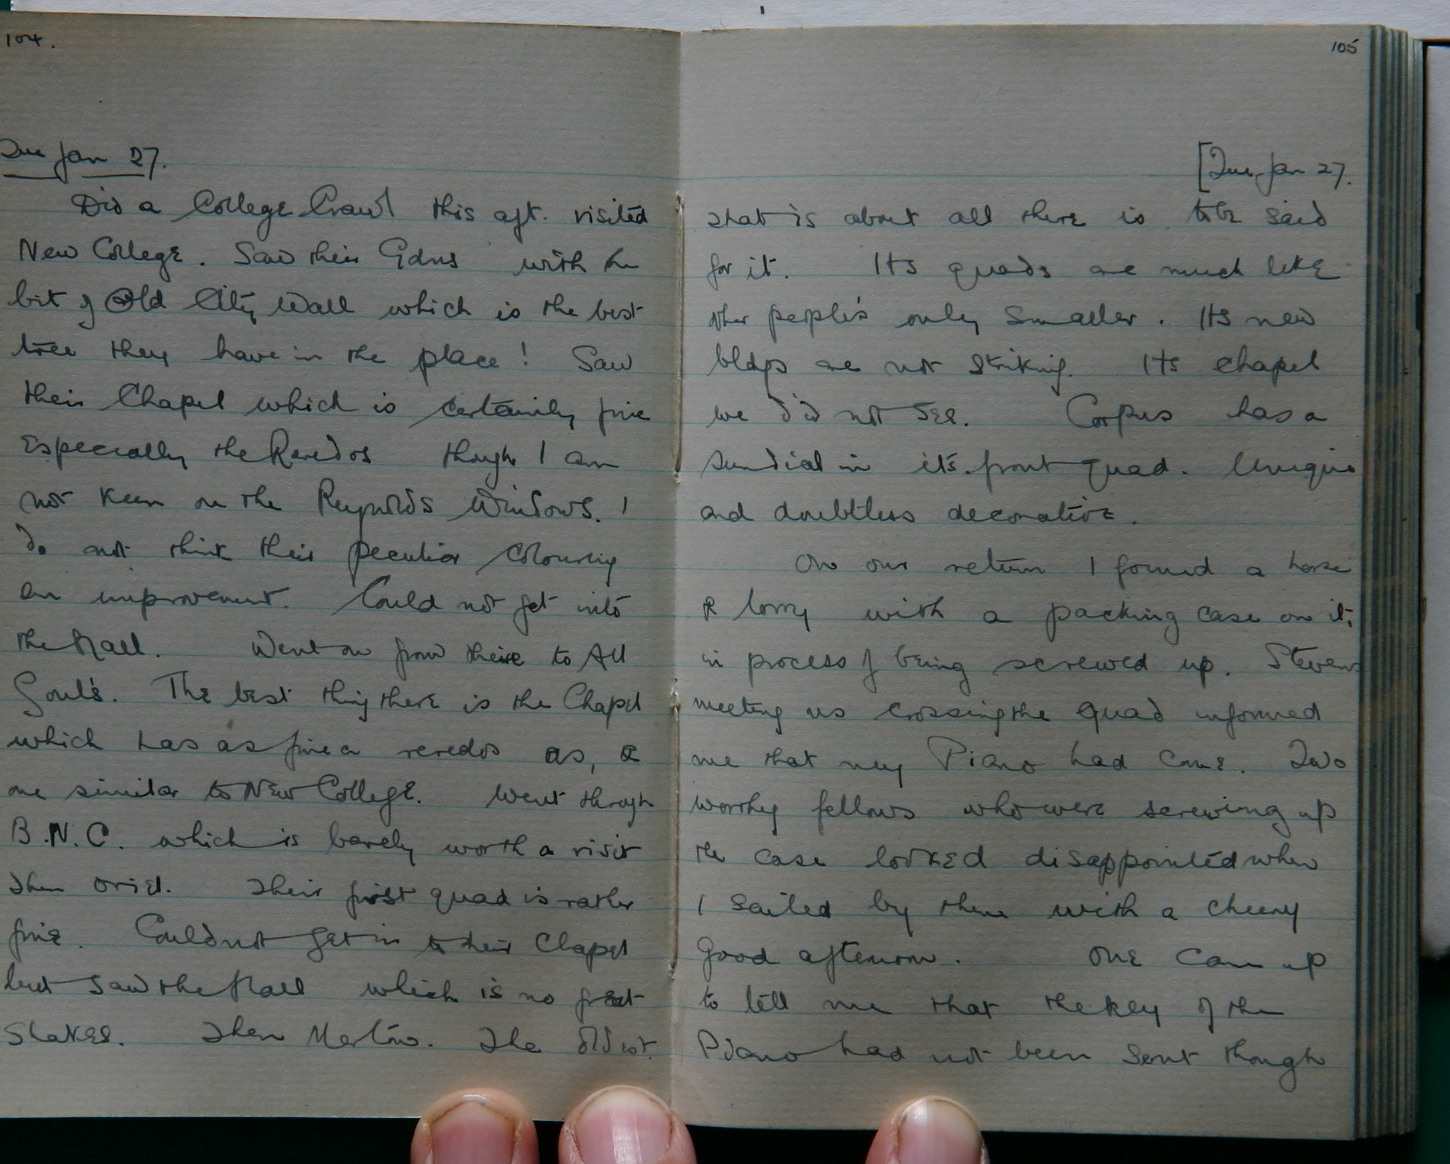 104.
Tue Jan 27.
Did a College Crawl this aft. visited
New College. Saw their Gdns with the
bit of Old City Wall which is the best
tree they have in the place! Saw
their Chapel which is certainly fine
Especially the Reredos though I am
not keen on the Reynolds Windows. I
do not think their peculiar colouring
an improvement. Could not get into
the Hall. Went on from there to All
Soul's. The best thing there is the Chapel
which has as fine a reredos as, &
one similar to New College. Went through
B.N.C. which is barely worth a visit
Then Oriel. Their first quad is rather
fine. Could not get in to their Chapel
but saw the Hall which is no great
Shakes. Then Merton. The oldest.
105
[Tue Jan 27.
That is about all there is to be said
for it. Its quads are much like
other people's only smaller. Its new
bldgs are not striking. Its chapel
we did not see. Corpus has a
Sundial in it's front quad. Unique
and doubtless decorative.
On our return I found a horse
& lorry with a packing case on it,
in process of being screwed up. Stevens
meeting us crossing the quad informed
me that my Piano had come. Two
worthy fellows who were screwing up
the case looked disappointed when
I sailed by them with a cheery
good afternoon. One came up
to tell me that the key of the
Piano had not been sent though